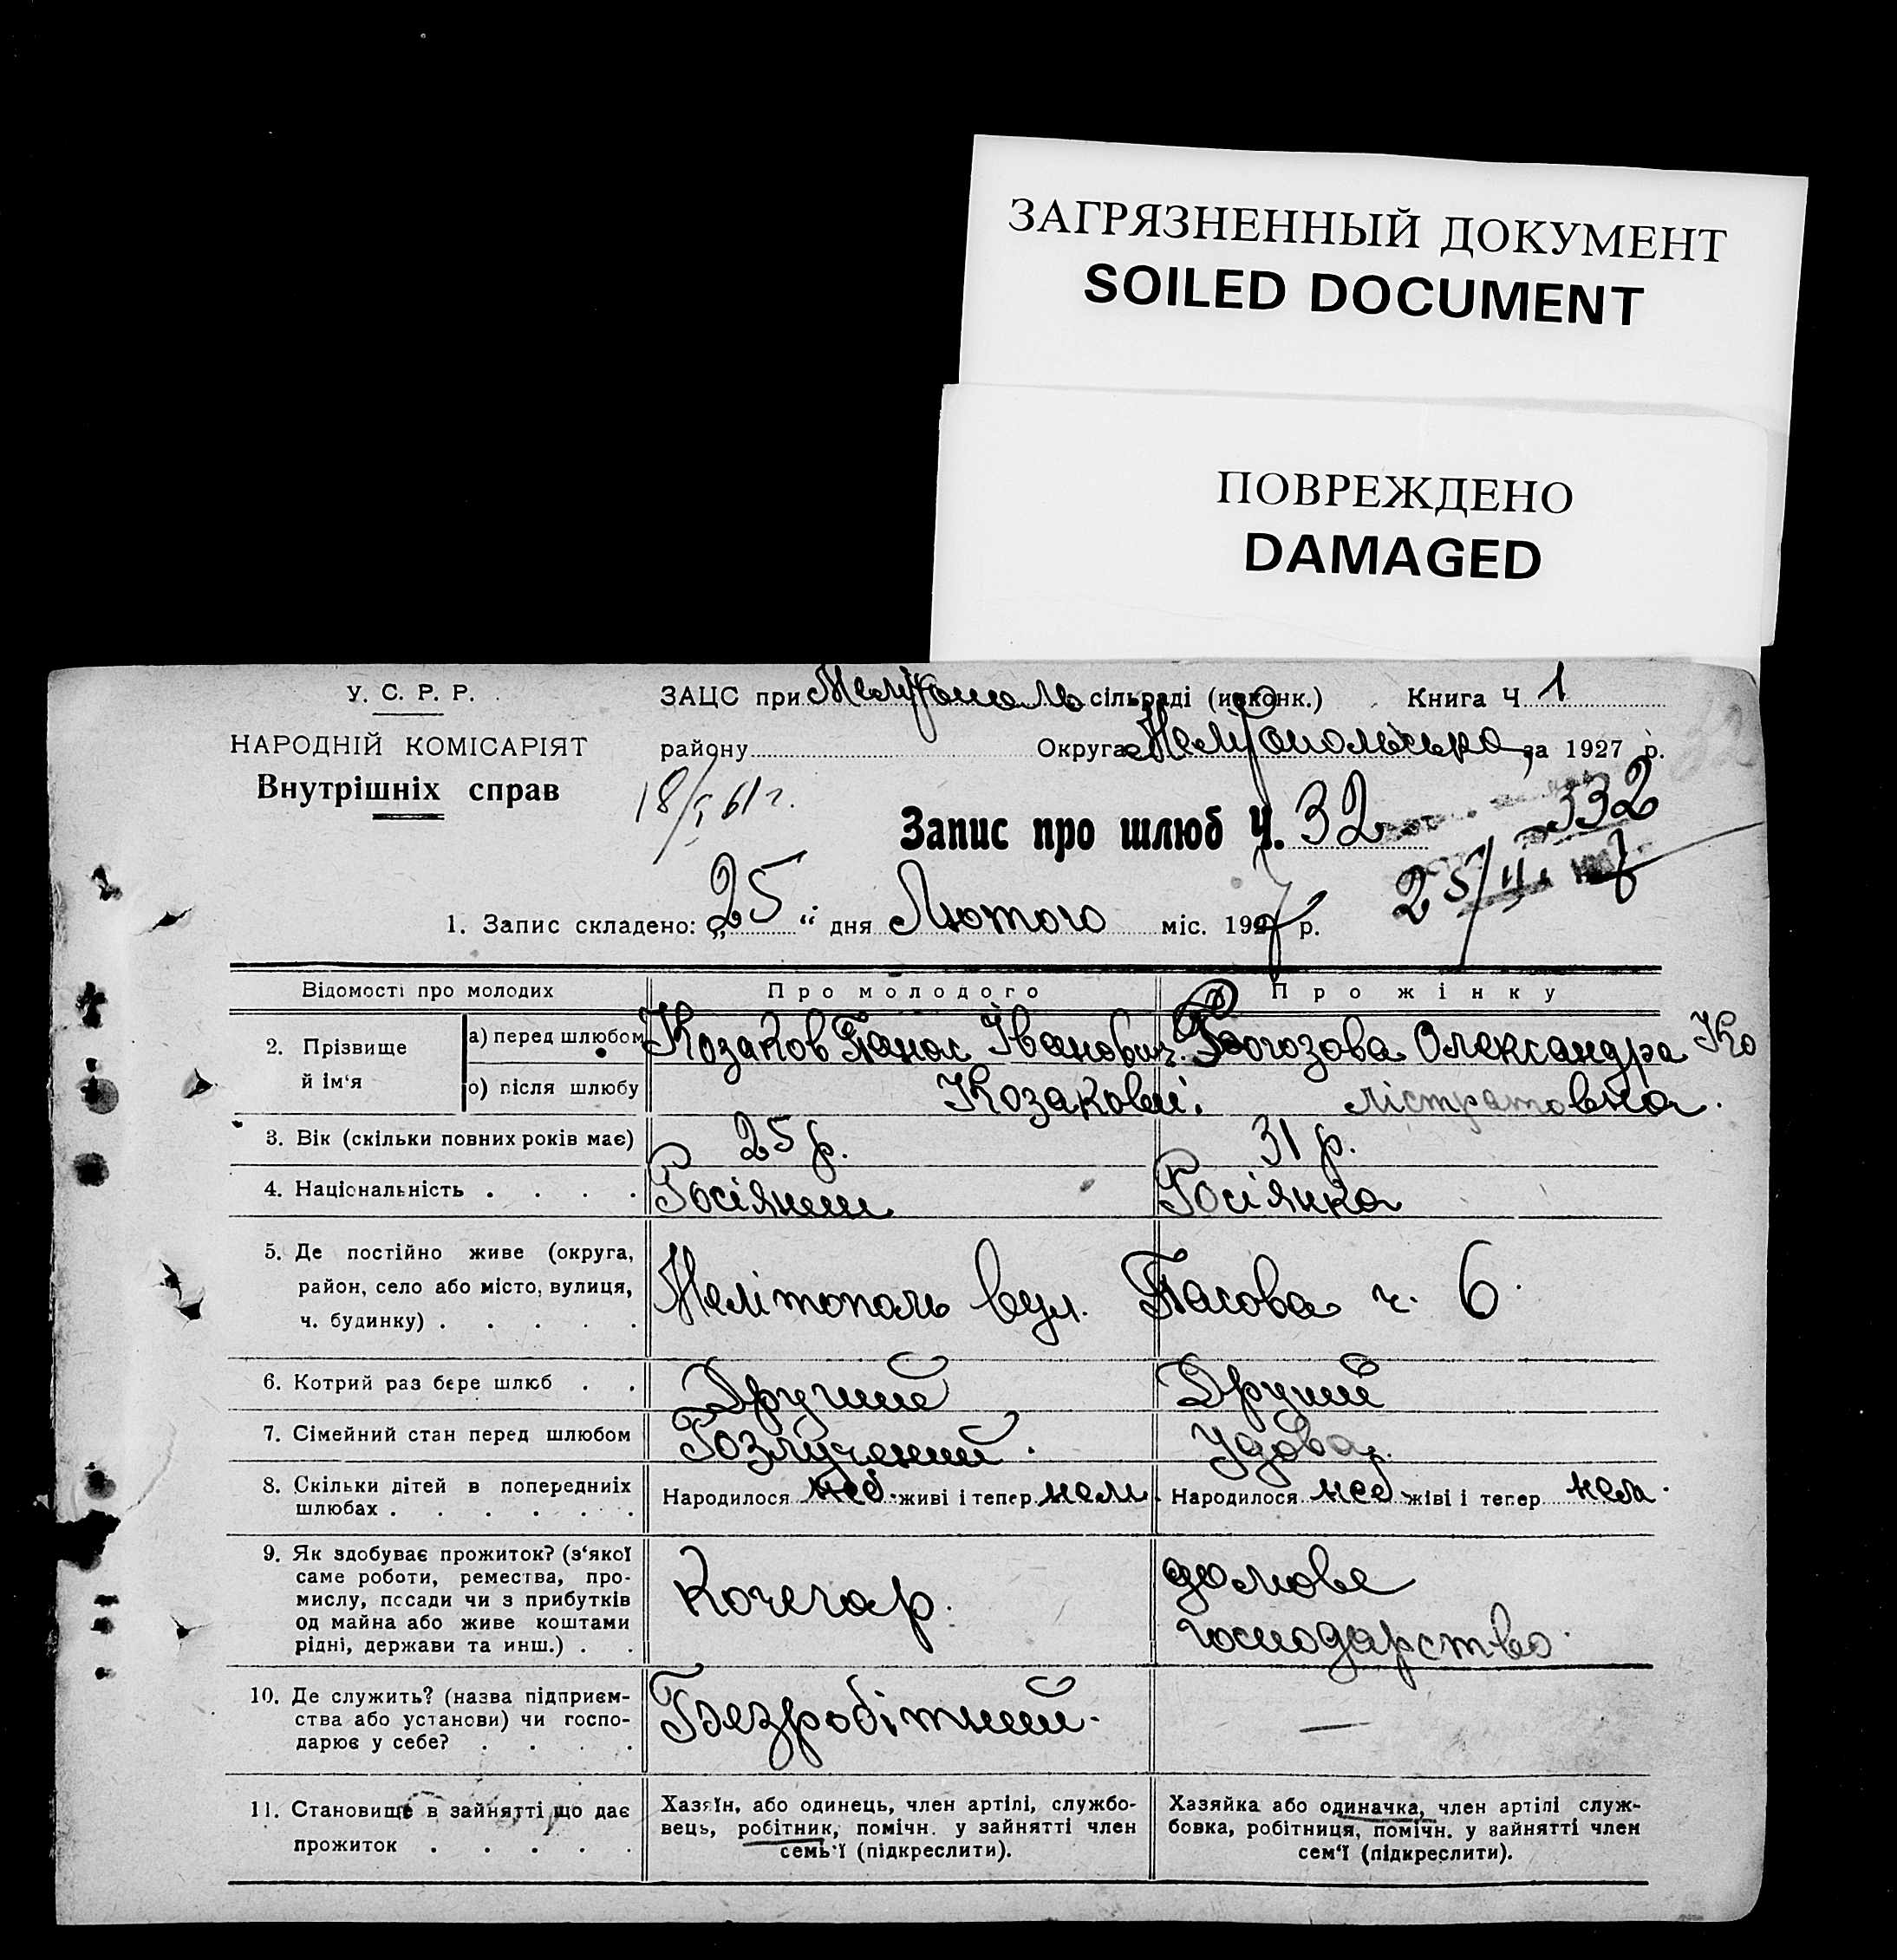 ЗАГРЯЗНЕННЫЙ ДОКУМЕНТ
SOILED DOCUMENT
ПОВРЕЖДЕНО
DAMAGED
У. С. Р. Р.
НАРОДНІЙ КОМІСАРІЯТ
Внутрішніх справ
ЗАЦС при Мелітополь сільраді (исконк.) Книга Ч 1
району Округа Мелітопольська за 1927 р.
18/I 61 г.
Запис про шлюб Ч. 32
332
25/II
1. Запис складено: „25“ дня Лютого міс. 1927 р.
Відомості про молодих
Про молодого
Про жінку
2. Прізвище й ім‘я
а) перед шлюбом
Козаков Панас Іванович.
Рогозова Олександра Ко
о) після шлюбу
Козакови.
лістратовна.
3. Вік (скільки повних років має)
25 р.
31 р.
4. Національність . . . .
Росіянин
Росіянка
5. Де постійно живе (округа,
район, село або місто, вулиця,
ч. будинку) . . . . .
Мелітополь вул. Пасова ч. 6.
6. Котрий раз бере шлюб . .
Другий
Другий
7. Сімейний стан перед шлюбом
Розлучений.
Удова.
8. Скільки дітей в попередніх
шлюбах . . . . . .
Народилося живі і тепер нем.
Народилося жіві і тепер нема.
9. Як здобуває прожиток? (з‘якої
саме роботи, ремества, про-
мислу, посади чи з прибутків
од майна або живе коштами
рідні, держави та инш.) . .
Кочегар.
домове
господарство.
10. Де служить? (назва підприєм-
ства або установи) чи госпо-
дарює у себе? . . . .
Безробітний.
—
11. Становище в зайнятті що дає
прожиток . . . . .
Хазяїн, або одинець, член артілі, службо-
вець, робітник, помічн. у зайнятті член
семь‘ї (підкреслити).
Хазяйка або одиначка, член артілі служ-
бовка, робітниця, помічн. у зайнятті член
сем‘ї (підкреслити).